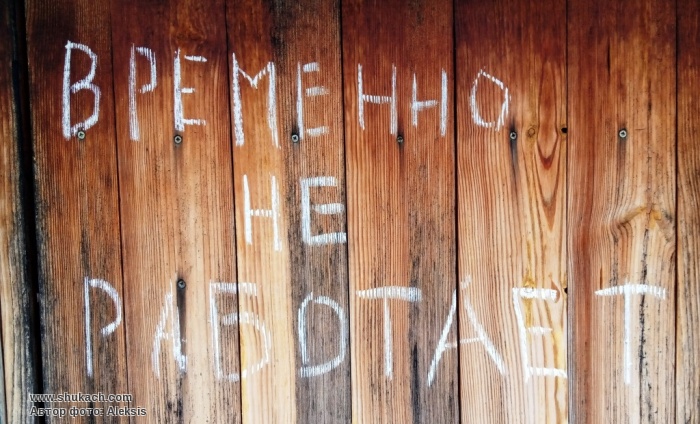 ВРЕМЕННО
НЕ
РАБОТАЕТ
www.shukach.com
Автор фото: Aleksis